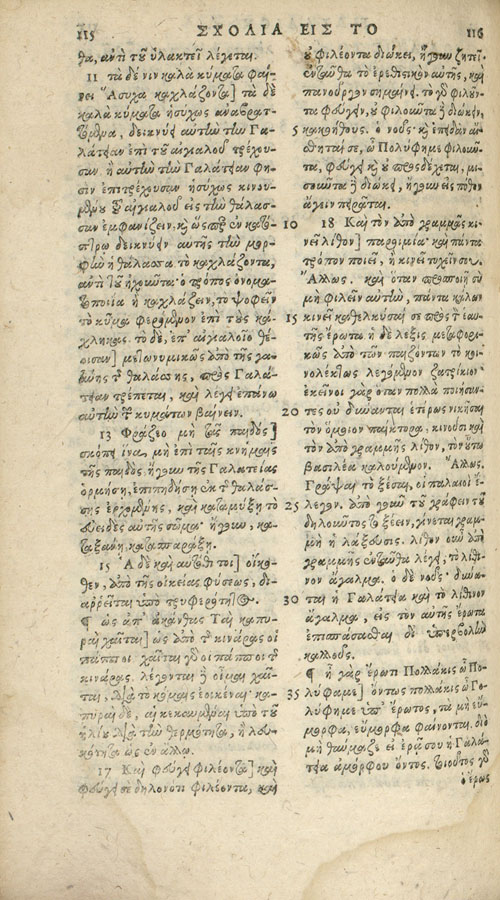 115 ΣΧΟΛΙΑ ΕΙΣ ΤΟ 116
θα, ἀντὶ τοῦ ὑλακτεῖ λέγεται.
11 τὰ δέ νιν καλὰ κύματα φαί-
νει Ἄσυχα καχλάζοντα] τὰ δὲ
καλὰ κύματα ἡσύχως ἀναβρατ-
τόμενα, δεικνύει αὐτὴν τὴν Γα-
λατείαν ἐπὶ τοῦ αἰγιαλοῦ τρέχου-
σαν. ἢ αὐτὴν τὴν Γαλατείαν φη-
σὶν ἐπιτρέχουσαν ἡσύχως κινου-
μένου τοῦ αἰγιαλοῦ εἰς τὴν θάλασ-
σαν ἐμφανίζειν. καὶ ὥσπερ ἐν κατό-
πτρῳ δεικνύειν αὐτῆς τὴν μορ-
φὴν ἡ θάλασσα τὸ καχλάζοντα,
ἀντὶ τοῦ ἠχοῦντα. ὁ τρόπος ὀνομα-
τοποιΐα ἢ καχλάζειν, τὸ ψοφεῖν
τὸ κῦμα φερόμενον ἐπὶ τοὺς κά-
χληκας. τὸ δὲ, ἐπ' αἰγιαλοῖο θέ-
οισαν] μετωνυμικῶς ἀπὸ τῆς
τῆς θαλάσσης, πρὸς Γαλά-
τειαν τρέπεται, καὶ λέγει ἐπάνω
αὐτὴν τῶν κυμάτων βαίνειν.
13 Φράζεο μὴ τᾶς παιδὸς]
σκόπει ἵνα μὴ ἐπὶ ταῖς κνήμαις
τῆς παιδὸς, ἤγουν τῆς Γαλατείας
ὁρμήσῃ, ἐπιπηδήσῃ ἐκ τῆς θαλάσ-
σης ἐρχομένης, καὶ καταμύξῃ τὸ
εὐειδὲς αὐτῆς σῶμα. ἤγουν, κα-
ταξάνῃ κατασπαράξῃ.
15 Ἁ δὲ καὶ αὐτόθι τοι] οἴκο-
θεν, ἀπὸ τῆς οἰκείας φύσεως, δι-
αρρεῖται ὑπὸ τρυφερότητος.
¶ ὡς ἀπ' ἀκάνθας Ταὶ καπυ-
ραὶ χαῖται] ὡς ἀπὸ τῆς κινάρας οἱ
πάπποι χαῖται γὰρ οἱ πάπποι τῆς
κινάρας. λέγονται καὶ χαῖ-
ται, διὰ τὸ κόμαις ἐοικέναι. κα-
πυραὶ δὲ, αἱ κεκαυμέναι ὑπὸ τοῦ
ἡλίου διὰ τὴν θερμότητα, ἢ λευ-
κότητα ὡς ἐν ἄλλῳ.
17 Καὶ φεύγει φιλέοντα] καὶ
φεύγει σε δηλονότι φιλέοντα, καὶ
οὐ φιλέοντα διώκει, ἤγουν ζητεῖ.
ἐνταῦθα τὸ ἐρεθιστικὸν αὐτῆς, καὶ
πανοῦργον σημαίνει. τὸ γὰρ φιλοῦν-
τα φεύγειν, οὐ φιλοῦντα διώκειν,
5 κακοήθους. ὁ νοῦς. καὶ ἐπειδὰν αἰ-
σθηταί σε, ὦ Πολύφημε φιλοῦν-
τα, φεύγει καὶ οὐ προσδέχεται, μι-
σοῦντα δὲ διώκει, ἤγουν εἰς πόθον
ἄγειν πειρᾶται.
10 18 Καὶ τὸν ἀπὸ γραμμᾶς κι-
νεῖ λίθον] παροιμία. καὶ πάντα
τρόπον ποιεῖ, ἢ κινεῖ τυχεῖν σου.
Ἄλλως. καὶ ὅταν προσποιῇ σὺ
μὴ φιλεῖν αὐτὴν, πάντα κάλων
15 κινεῖ καθελκύσαι σε πρὸς τὸ ἑαυ-
τῆς ἔρωτα. ἡ δὲ λέξις μεταφορι-
κῶς ἀπὸ τῶν παιζόντων τὸ κοι-
νολέκτως λεγόμενον ζατρίκιον.
ἐκεῖνοι γὰρ ὅταν πολλὰ ποιήσαν-
20 τες οὐ δύνανται ἑτέρως νικῆσαι
τὸν ὅμοιον παίκτορα, κινοῦσι καὶ
τὸν ἀπὸ γραμμῆς λίθον, τὸν οὕτω
βασιλέα καλούμενον. Ἄλλως.
Γράψαι τὸ ξέσαι, οἱ παλαιοὶ ἔ-
25 λεγον. ἀπὸ γοῦν τοῦ γράφειν τοῦ
δηλοῦντος τὸ ξέειν, γίνεται γραμ-
μὴ ἡ λάξευσις. λίθον οὖν ἀπὸ
γραμμῆς ἐνταῦθα λέγει, τὸ λίθι-
νον ἄγαλμα. ὁ δὲ νοῦς. δύνα-
30 ται ἡ Γαλάτεια καὶ τὸ λίθινον
ἄγαλμα, εἰς τὸν αὐτῆς ἔρωτα
ἐπισπάσασθαι δι' ὑπερβολὴν
κάλλους.
¶ ἦ γὰρ ἔρωτι Πολλάκις ὦ Πο-
35 λύφαμε] ὄντως πολλάκις ὦ Πο-
λύφημε ὑπ' ἔρωτος, τὰ μὴ εὔ-
μορφα, εὔμορφα φαίνονται. διὸ
μὴ θαύμαζε εἰ ἐρᾷ σου ἡ Γαλά-
τεια ἀμόρφου ὄντος. τοιοῦτος γὰρ
ὁ ἔρως